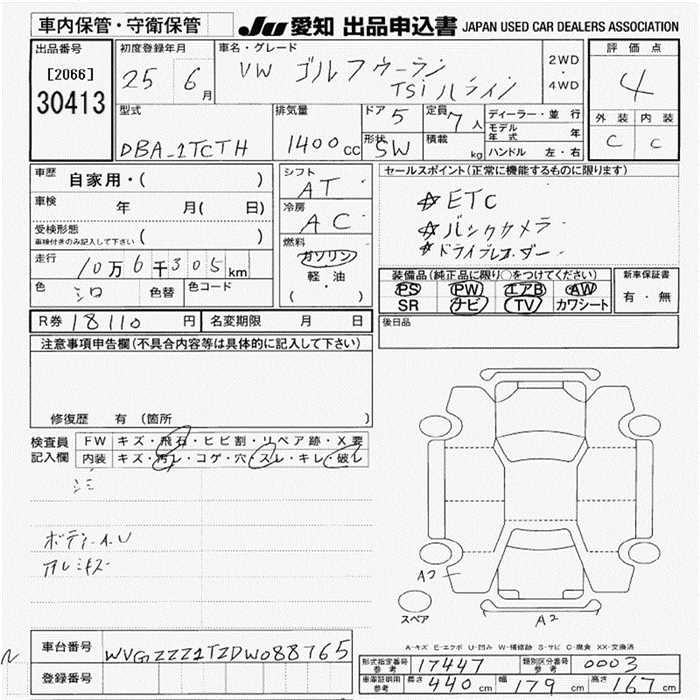 車内保管・守衛保管
JU 愛知 出品申込書 JAPAN USED CAR DEALERS ASSOCIATION
出品番号
[2066]
30413
初度登録年月
25 6月
車名・グレード
VW ゴルフトゥーラン
TSI ハイライン
2WD
・
4WD
評価点
4
外装 内装
C C
型式
DBA_1TCTH
排気量
1400cc
ドア 5
形状 SW
定員 7人
積載 kg
ディーラー・並行
モデル年式 年
ハンドル 左・右
車歴 自家用・( )
車検 年 月( 日)
受検形態
車検付きのみ記入して下さい ( )
走行 10万6千305km
色 シロ 色替 色コード
シフト AT
冷房 AC
燃料
ガソリン
軽・油
( ・ )
セールスポイント(正常に機能するものに限ります)
☆ETC
☆バックカメラ
☆ドライブレコーダー
装備品(純正品に限り○をつけてください)
PS PW エアB AW
SR ナビ TV カワシート
新車保証書
有・無
後日品
R券 18110 円
名変期限 月 日
注意事項申告欄(不具合内容等は具体的に記入して下さい)
修復歴 有 (箇所 )
検査員記入欄
FW キズ・飛石・ヒビ割・リペア跡・X要
内装 キズ・汚レ・コゲ・穴・スレ・キレ・破レ
シミ
ボディーイU
アルミキズ
A2
スペア
A2
A-キズ E-エクボ U-凹み W-補修跡 S-サビ C-腐食 XX-交換済
車台番号 WVGZZZ1TZDW088765
登録番号
形式指定番号 参考 17447
類別区分番号 参考 0003
車庫証明用 参考 長さ 440cm 幅 179cm 高さ 167cm